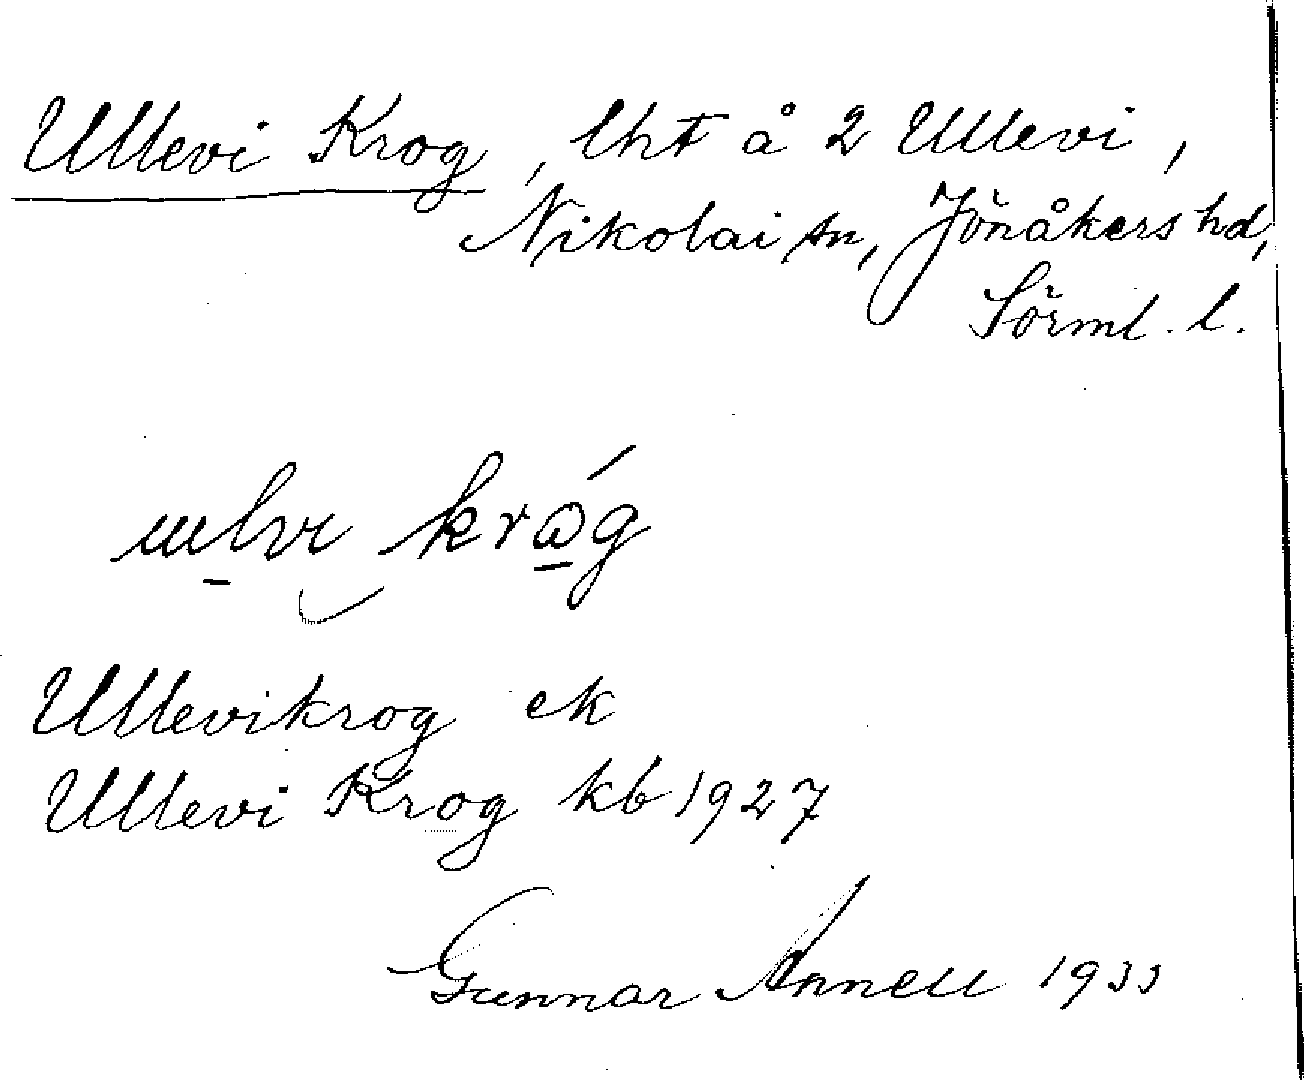 Ullevi Krog, lht å 2 Ullevi,
Nikolai sn, Jönåkers hd,
Sörml. l.
Ullevikrog ek
Ullevi Krog kb 1927
Gunnar Annell 1933